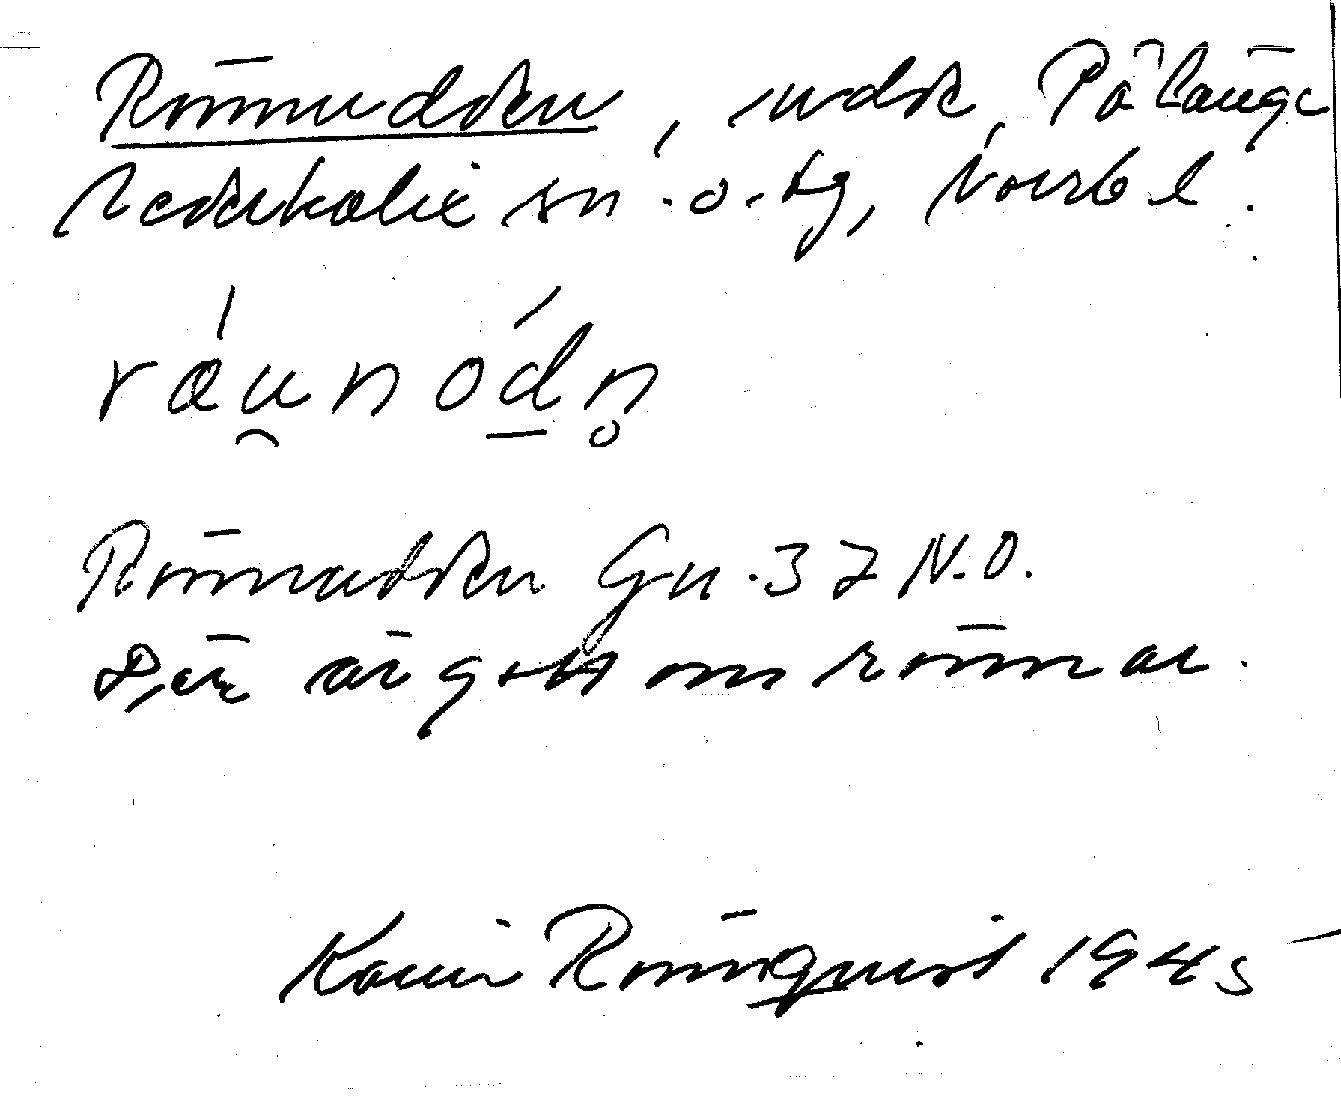 Rönnudden, udde, Pålänge
Nederkalix sn. o. tg, Norrb. l.
ráu̯nód̲n̥
Rönnudden Gn. 37 N.O.
Där är gott om rönnar.
Karin Rönnquist 1945